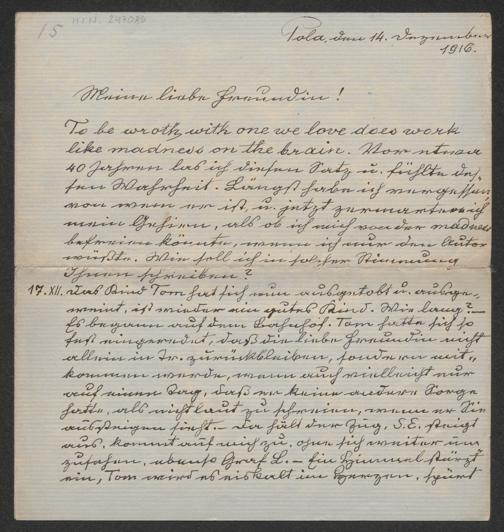 15
H.I.N. 247086
Pola, den 14. Dezember
1916.
Meine liebe Freundin!
To be wroth with one we love does work
like madness on the brain. Vor etwa
40 Jahren las ich diesen Satz u. fühlte des-
sen Wahrheit. Längst habe ich vergessen
von wem er ist, u. jetzt zermartere ich
mein Gehirn, als ob ich mich von der madness
befreien könnte, wenn ich nur den Autor
wüßte. Wie soll ich in solcher Stimmung
Ihnen schreiben?
17. XII. Das Kind Tom hat sich nun ausgetobt u. ausge-
weint, ist wieder ein gutes Kind. Wie lang? —
Es begann auf dem Bahnhof. Tom hatte sich so
fest eingeredet, daß die liebe Freundin nicht
allein in Tr. zurückbleiben, sondern mit-
kommen werde, wenn auch vielleicht nur
auf einen Tag, daß er keine andere Sorge
hatte, als nicht laut zu schreien, wenn er Sie
aussteigen sieht. — Da hält der Zug, S.E. steigt
aus, kommt auf mich zu, ohne sich weiter um
zusehen, ebenso Graf L. — Ein Himmel stürzt
ein, Tom wird es eiskalt im Herzen, spürt